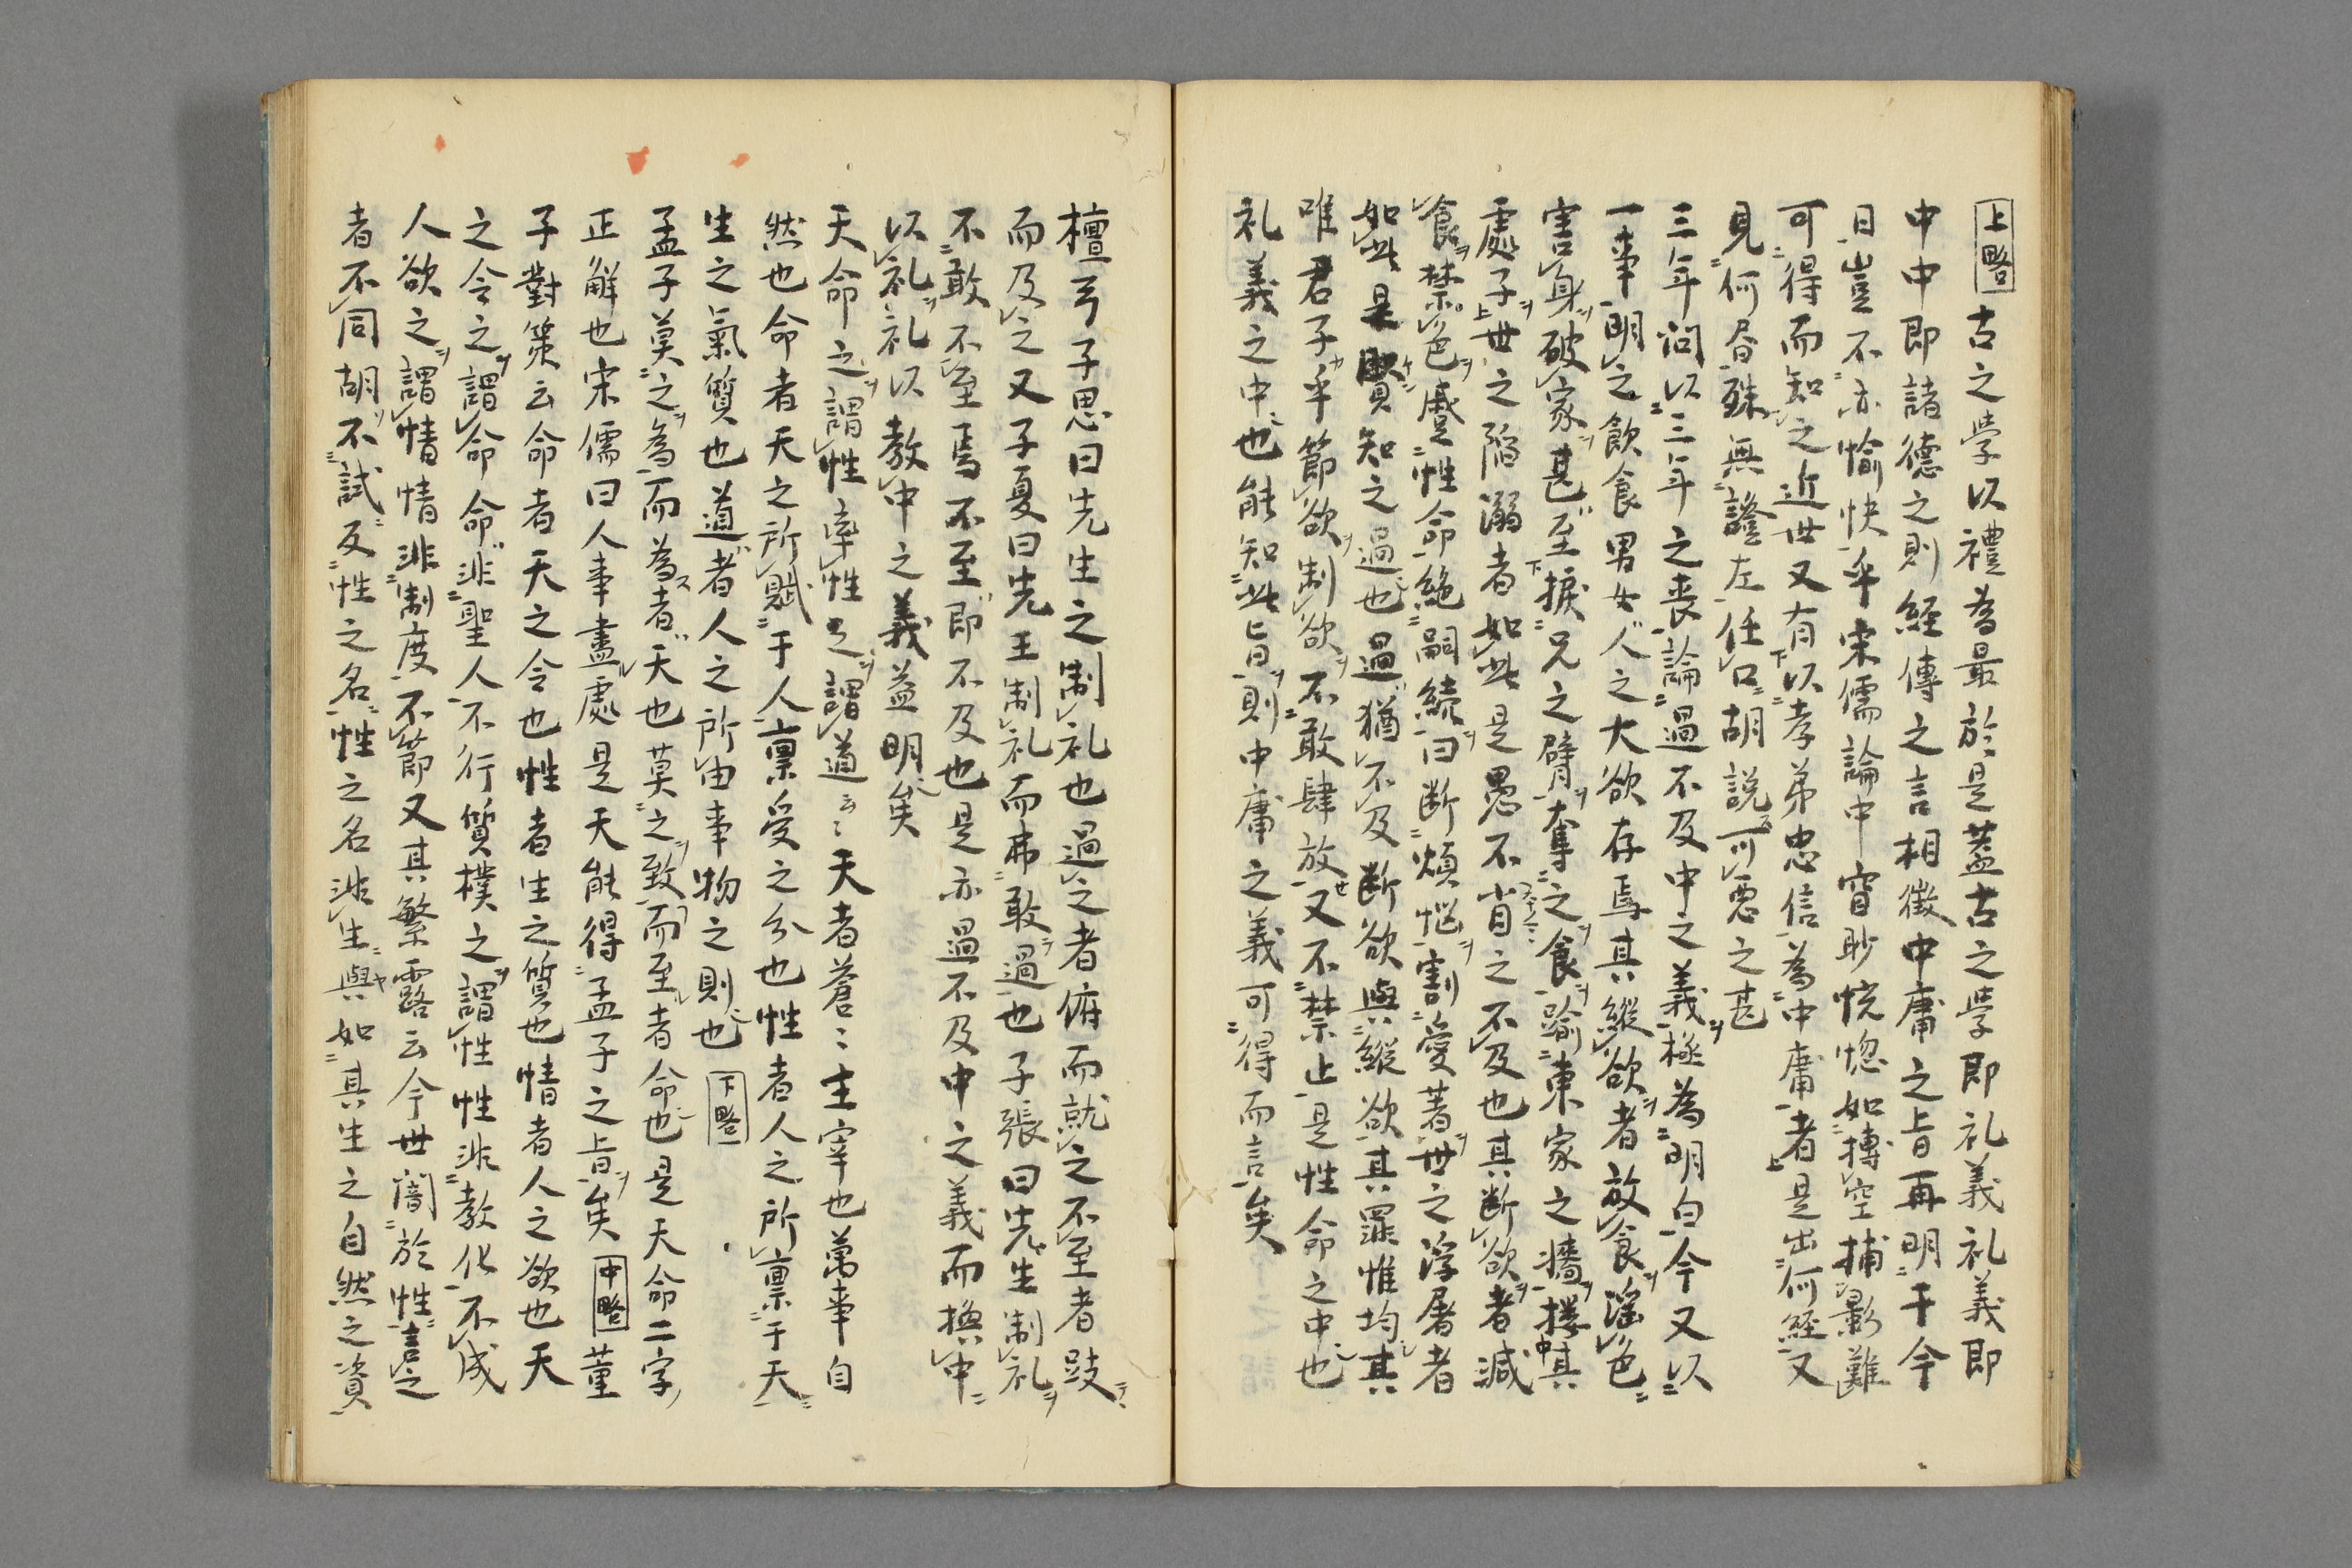 上略古之學以禮為最於是蓋古之學即礼義礼義即
中中即諸德之則経傳之言相徴中庸之旨再明于今
日豈不亦愉快乎宋儒論中窅眇恍惚如摶空捕影難
可得而知之近世又有以孝弟忠信為中庸者是出何経又
見何昏殊無證左任口胡説可悪之甚
三年问以三年之喪論過不及中之義極為明白今又以
一事明之飲食男女人之大欲存焉其縱欲者放食滛色
害身破家甚至捩兄之臂奪之食踰東家之墻摟其
處子世之陷溺者如此是愚不肖之不及也其断欲者減
食禁色蹙性命絶嗣続曰断煩悩割愛著世之浮屠者
如此是賢知之過也過猶不及断欲與縱欲其罪惟均其
唯君子乎節欲制欲不敢肆放又不禁止是性命之中也
礼義之中也能知此旨則中庸之義可得而言矣
檀弓子思曰先生之制礼也過之者俯而就之不至者跂
而及之又子夏曰先王制礼而弗敢過也子張曰先生制礼
不敢不至焉不至即不及也是亦過不及中之義而換中
以礼礼以教中之義益明矣
天命之謂性率性之謂道云〻天者蒼〻主宰也萬事自
然也命者天之所賦于人禀受之分也性者人之所禀于天
生之氣質也道者人之所由事物之則也下略
孟子莫之為而為者天也莫之致而至者命也是天命二字
正觧也宋儒曰人事盡處是天能得孟子之旨矣中略董
子對策云命者天之令也性者生之質也情者人之欲也天
之令之謂命命非聖人不行質樸之謂性性非教化不成
人欲之謂情情非制度不節又其繁露云今世闇於性言之
者不同胡不試反性之名性之名非生與如其生之自然之資